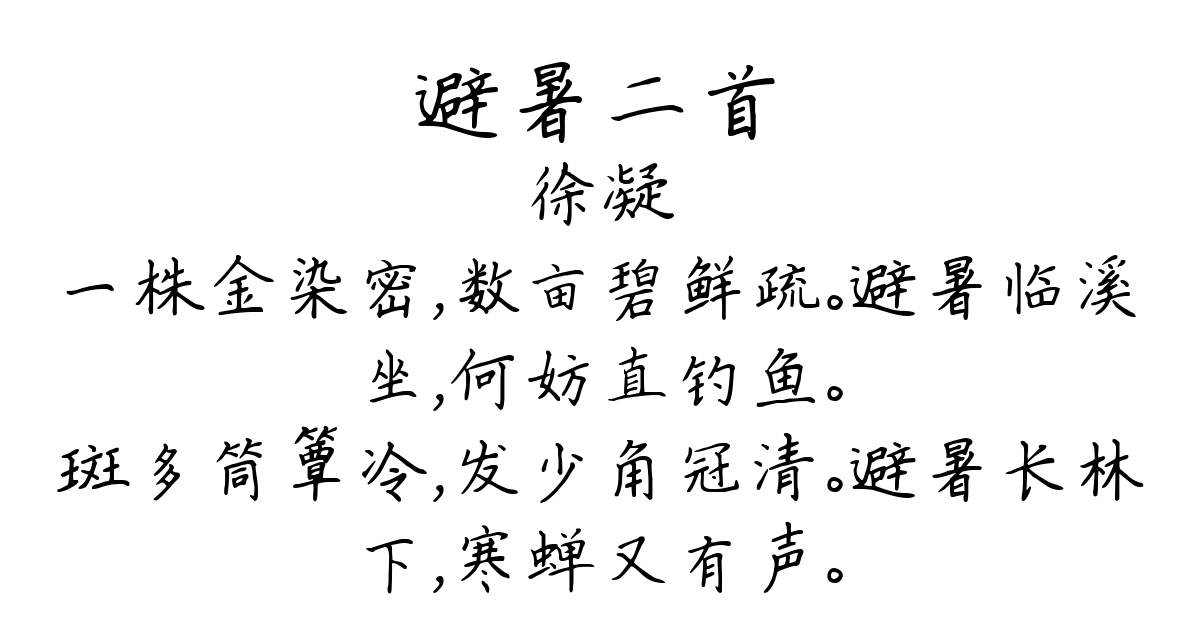 避暑二首
徐凝
一株金染密,数亩碧鲜疏。避暑临溪
坐,何妨直钓鱼。
斑多筒簟冷,发少角冠清。避暑长林
下,寒蝉又有声。